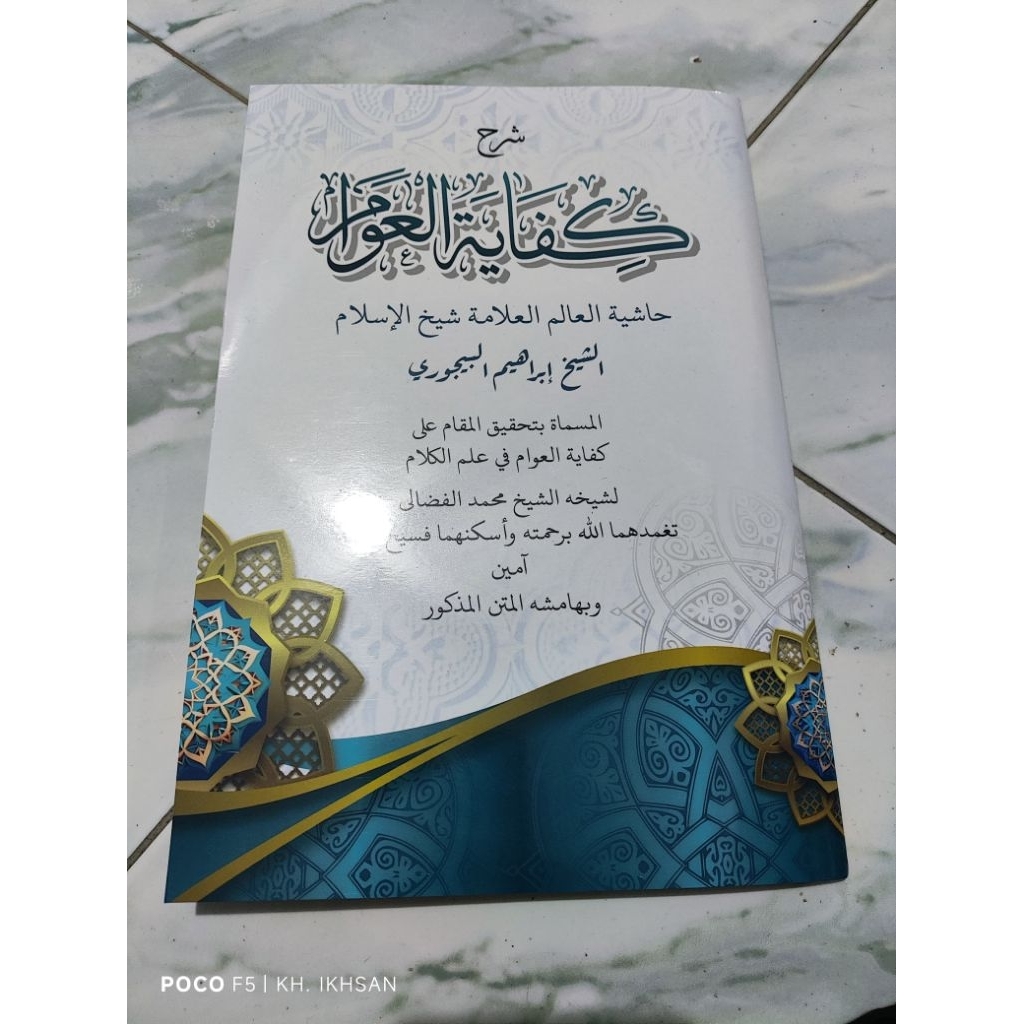 شرح
كِفَايَة العَوَام
حاشية العالم العلامة شيخ الإسلام
الشيخ إبراهيم البيجوري
المسماة بتحقيق المقام على
كفاية العوام في علم الكلام
لشيخه الشيخ محمد الفضالى
تغمدهما الله برحمته وأسكنهما فسيح
آمين
وبهامشه المتن المذكور
POCO F5 | KH. IKHSAN